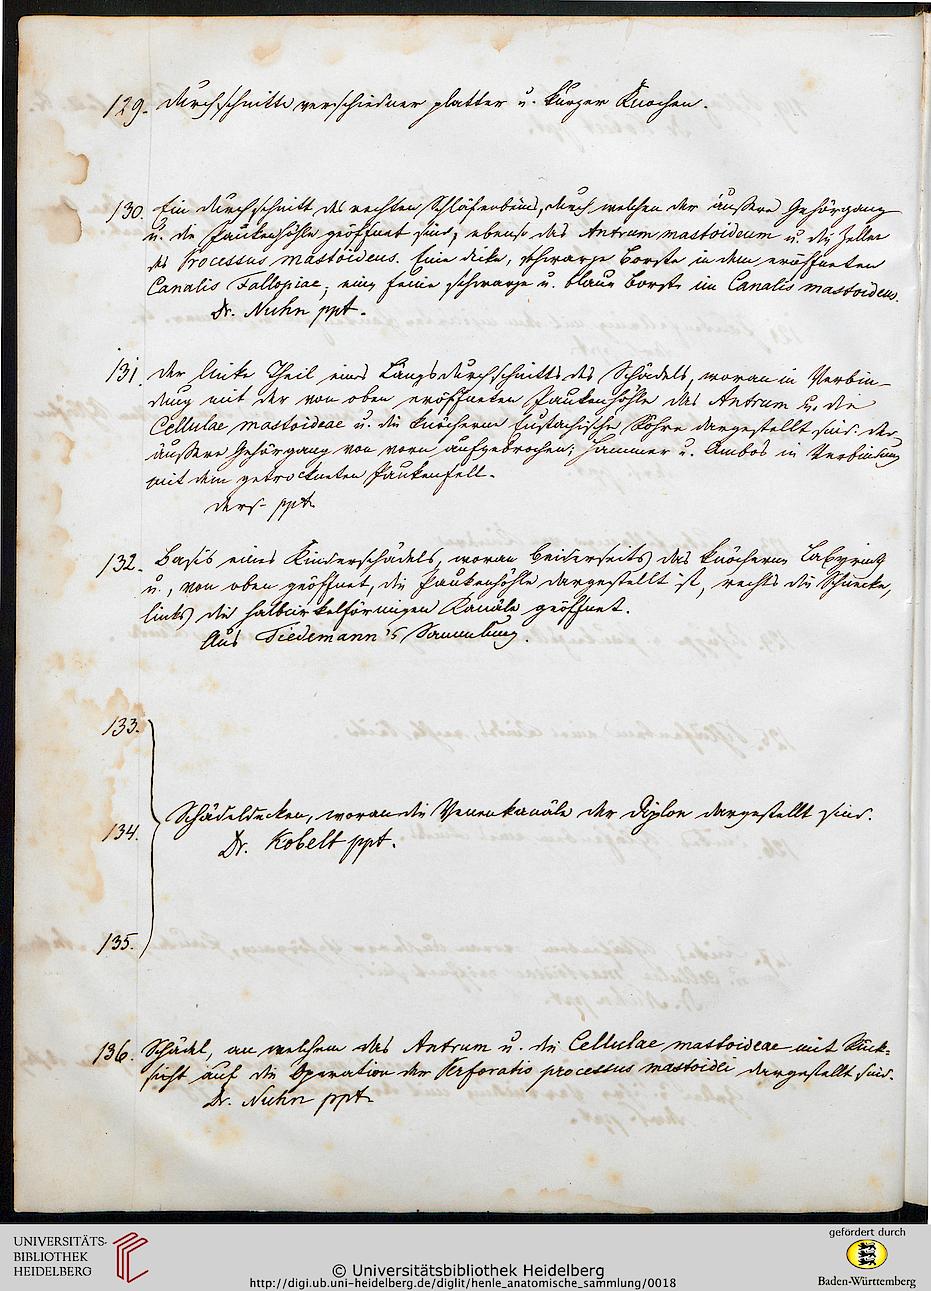 129. Durchschnitte verschiedner platter u. kurzer Knochen.
130. Ein Durchschnitt des rechten Schläfenbeins, durch welchen der äußere Gehörgang
u. die Paukenhöhle geöffnet sind; ebenso das Antrum mastoideum u. die Zellen
des Processus mastoideus. Eine dicke, schwarze Borste in dem eröffneten
Canalis Fallopiae; eine feine schwarze u. blaue Borste im Canalis mastoideus.
Dr. Nuhn ppt.
131. Der linke Theil eines Längsdurchschnitts des Schädels, woran in Verbin-
dung mit der von oben eröffneten Paukenhöhle das Antrum u. die
Cellulae mastoideae u. die knöcherne Eustachische Röhre dargestellt sind. Der
äußere Gehörgang von vorn aufgebrochen; Hammer u. Ambos in Verbindung
mit dem getrockneten Paukenfell.
ders. ppt.
132. Basis eines Kinderschädels, woran beiderseits das knöcherne Labyrinth
u., von oben geöffnet, die Paukenhöhle dargestellt ist, rechts die Schnecke,
links die halbcirkelförmigen Kanäle geöffnet.
Aus Tiedemann's Sammlung.
133.
134. Schädeldecken, woran die Venenkanäle der Diploe dargestellt sind.
Dr. Kobelt ppt.
135.
136. Schädel, an welchem das Antrum u. die Cellulae mastoideae mit Rück-
sicht auf die Operation der Perforatio processus mastoidei dargestellt sind.
Dr. Nuhn ppt.
UNIVERSITÄTS-
BIBLIOTHEK
HEIDELBERG
© Universitätsbibliothek Heidelberg
http://digi.ub.uni-heidelberg.de/diglit/henle_anatomische_sammlung/0018
gefördert durch
Baden-Württemberg